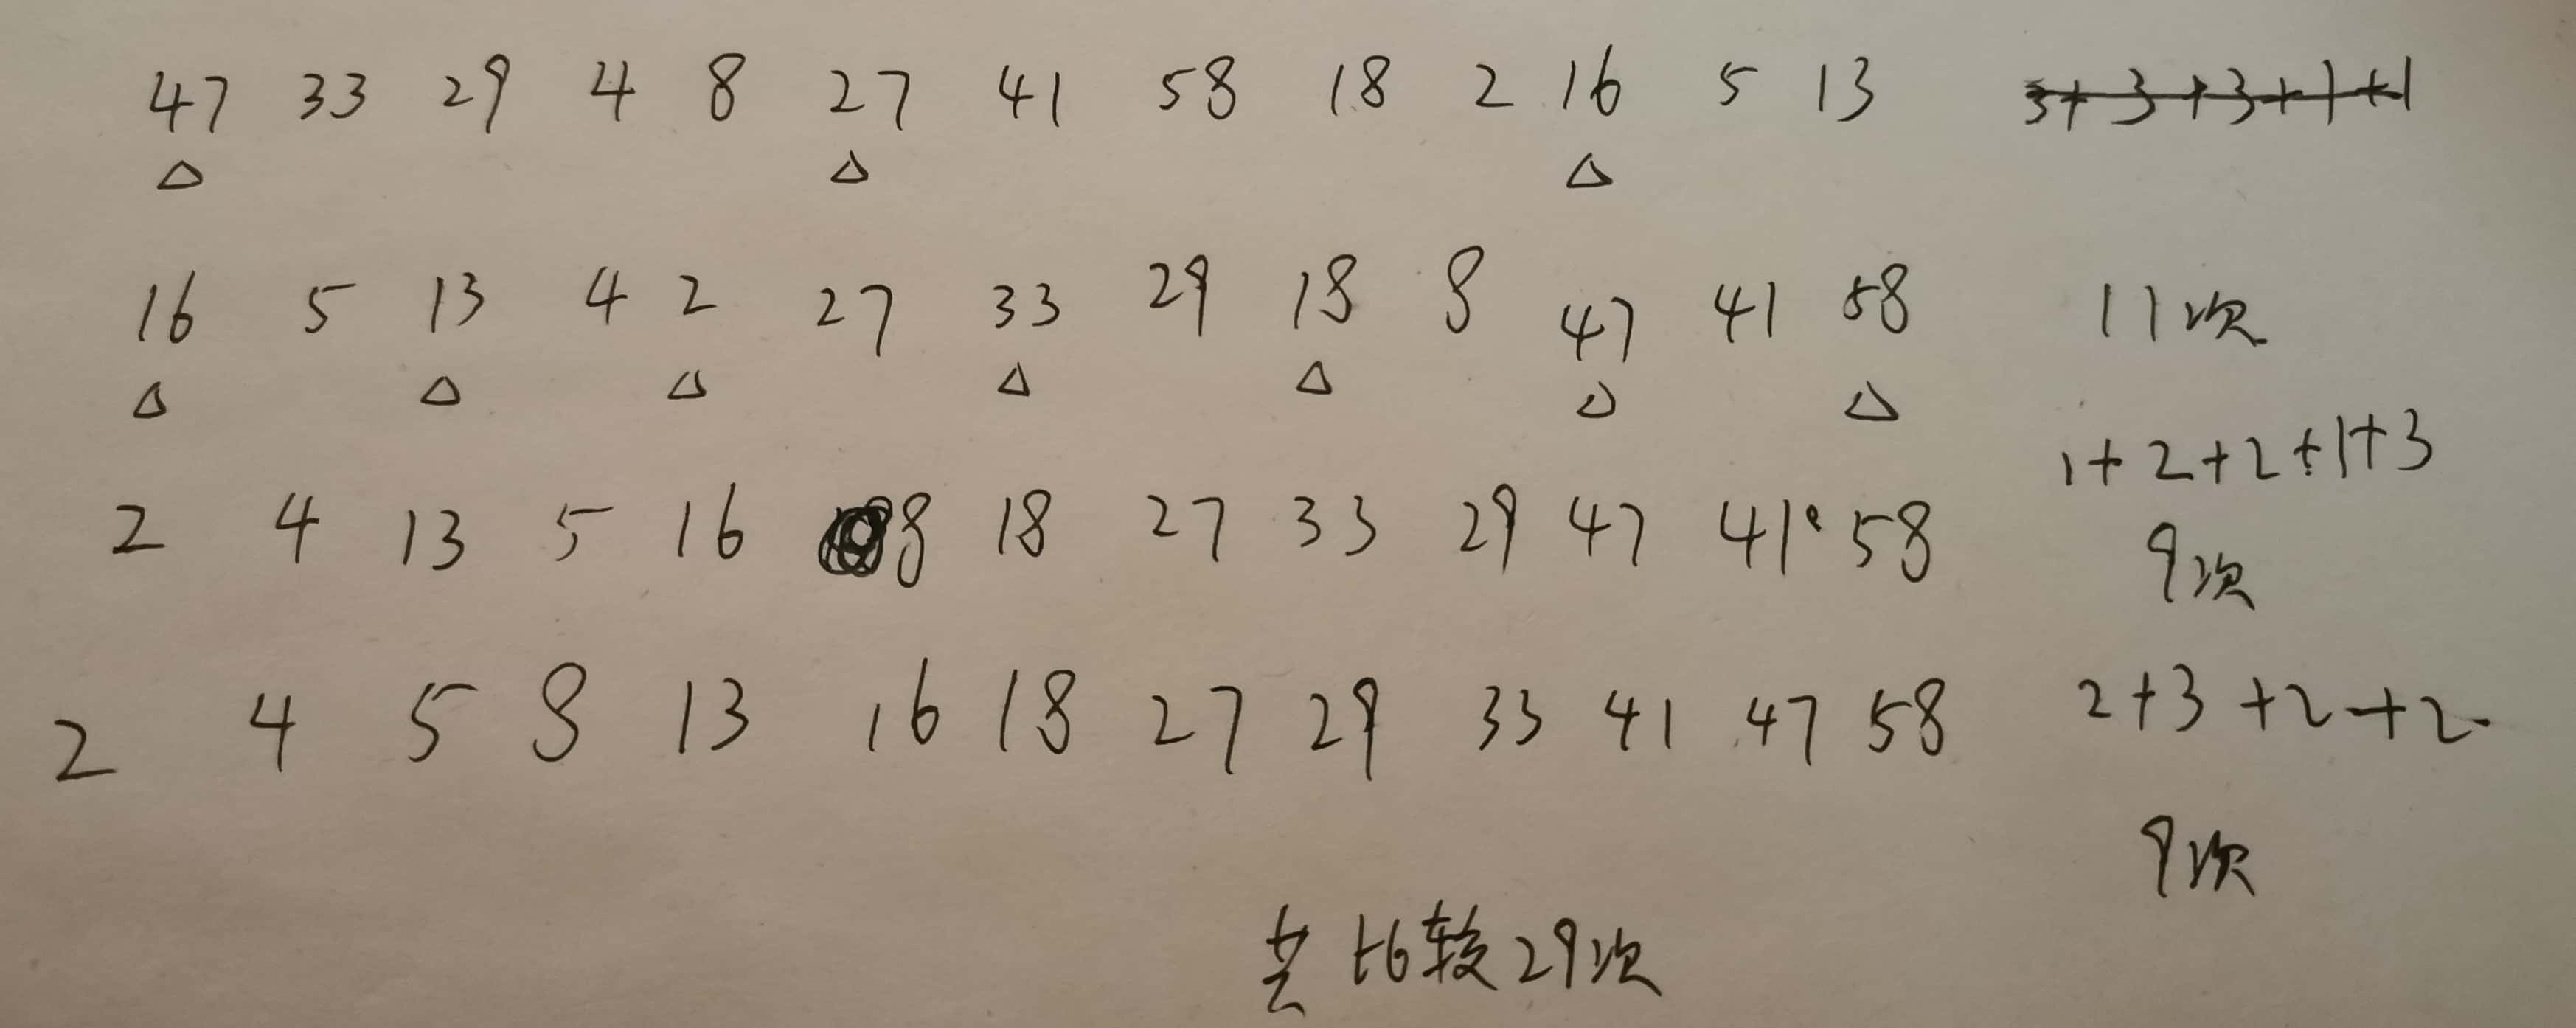 47 33 29 4 8 27 41 58 18 2 16 5 13 3+3+3+1+1
16 5 13 4 2 27 33 29 18 8 47 41 58 11次
1+2+2+1+3
2 4 13 5 16 8 18 27 33 29 47 41 58 9次
2 4 5 8 13 16 18 27 29 33 41 47 58 2+3+2+2
9次
共比较29次